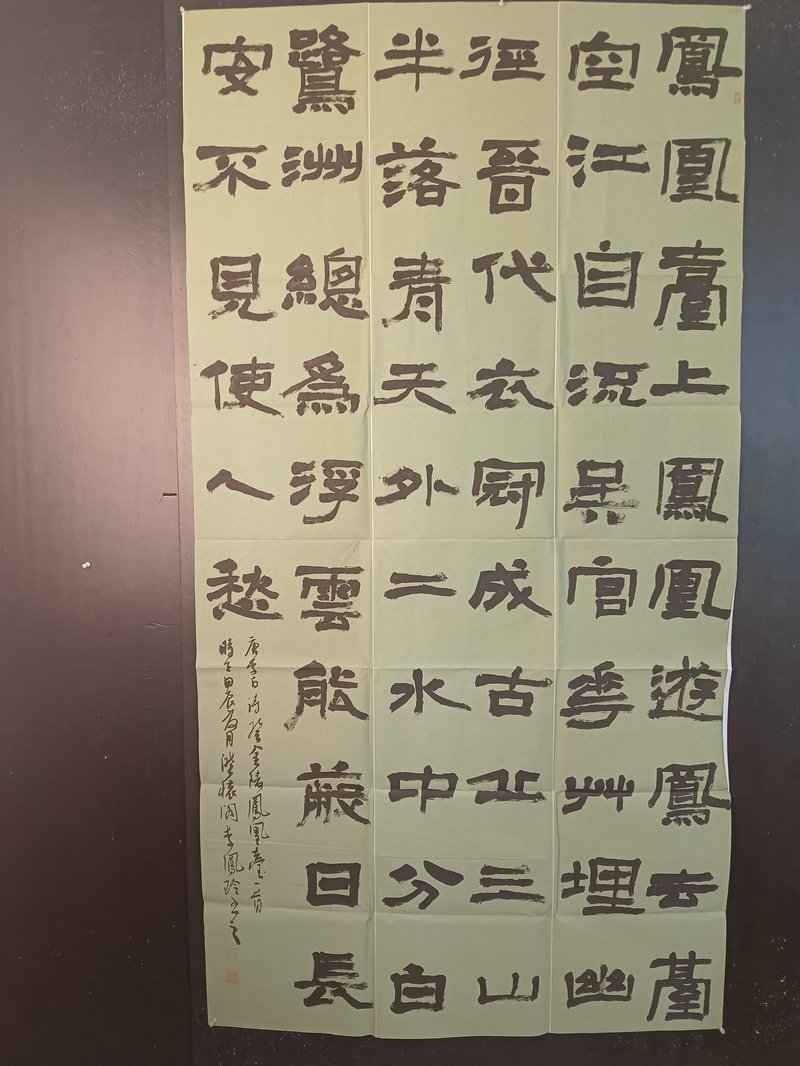 鳳凰臺上鳳凰遊鳳去臺
空江自流吳宮華艸埋幽
徑晉代衣冠成古丘三山
半落青天外二水中分白
鷺洲總為浮雲能蔽日長
安不見使人愁
唐李白詩登金陵鳳凰臺一首
時在甲辰夏月澄懷閣李鳳玲書之